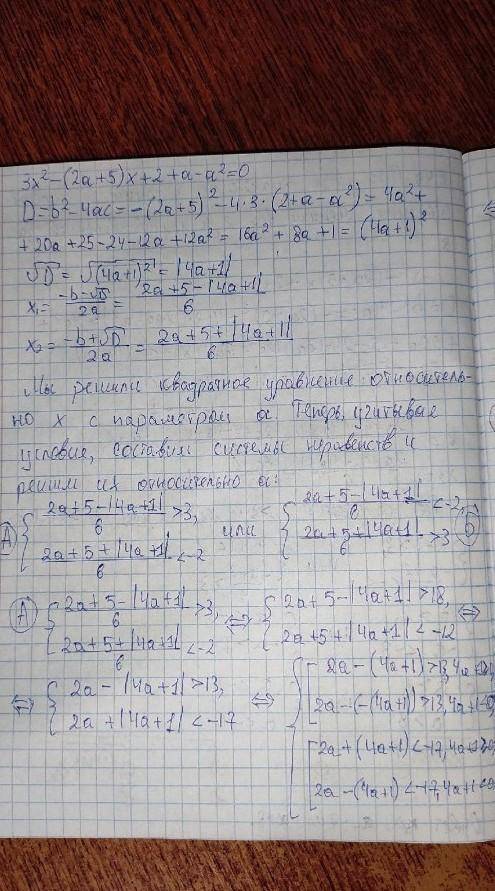 3x² − (2a+5)x + 2 + a − a² = 0
D = b² − 4ac = −(2a+5)² − 4·3·(2+a−a²) = 4a² +
+ 20a + 25 − 24 − 12a + 12a² = 16a² + 8a + 1 = (4a+1)²
√D = √(4a+1)² = |4a+1|
x₁ = (−b−√D)/2a = (2a+5−|4a+1|)/6
x₂ = (−b+√D)/2a = (2a+5+|4a+1|)/6
Мы решили квадратное уравнение относитель-
но x с параметром a. Теперь, учитывая
условие, составим системы неравенств и
решим их относительно a:
А) { (2a+5−|4a+1|)/6 > 3, или { (2a+5−|4a+1|)/6 < −2,
(2a+5+|4a+1|)/6 < −2 (2a+5+|4a+1|)/6 > 3 Б)
А) { (2a+5−|4a+1|)/6 > 3, ⇔ { 2a+5−|4a+1| > 18, ⇔
(2a+5+|4a+1|)/6 < −2 2a+5+|4a+1| < −12
⇔ { 2a − |4a+1| > 13, ⇔ { [ 2a − (4a+1) > 13, 4a+1
2a + |4a+1| < −17 2a − (−(4a+1)) > 13, 4a+1<0
[ 2a + (4a+1) < −17, 4a+1
2a − (4a+1) < −17, 4a+1<0